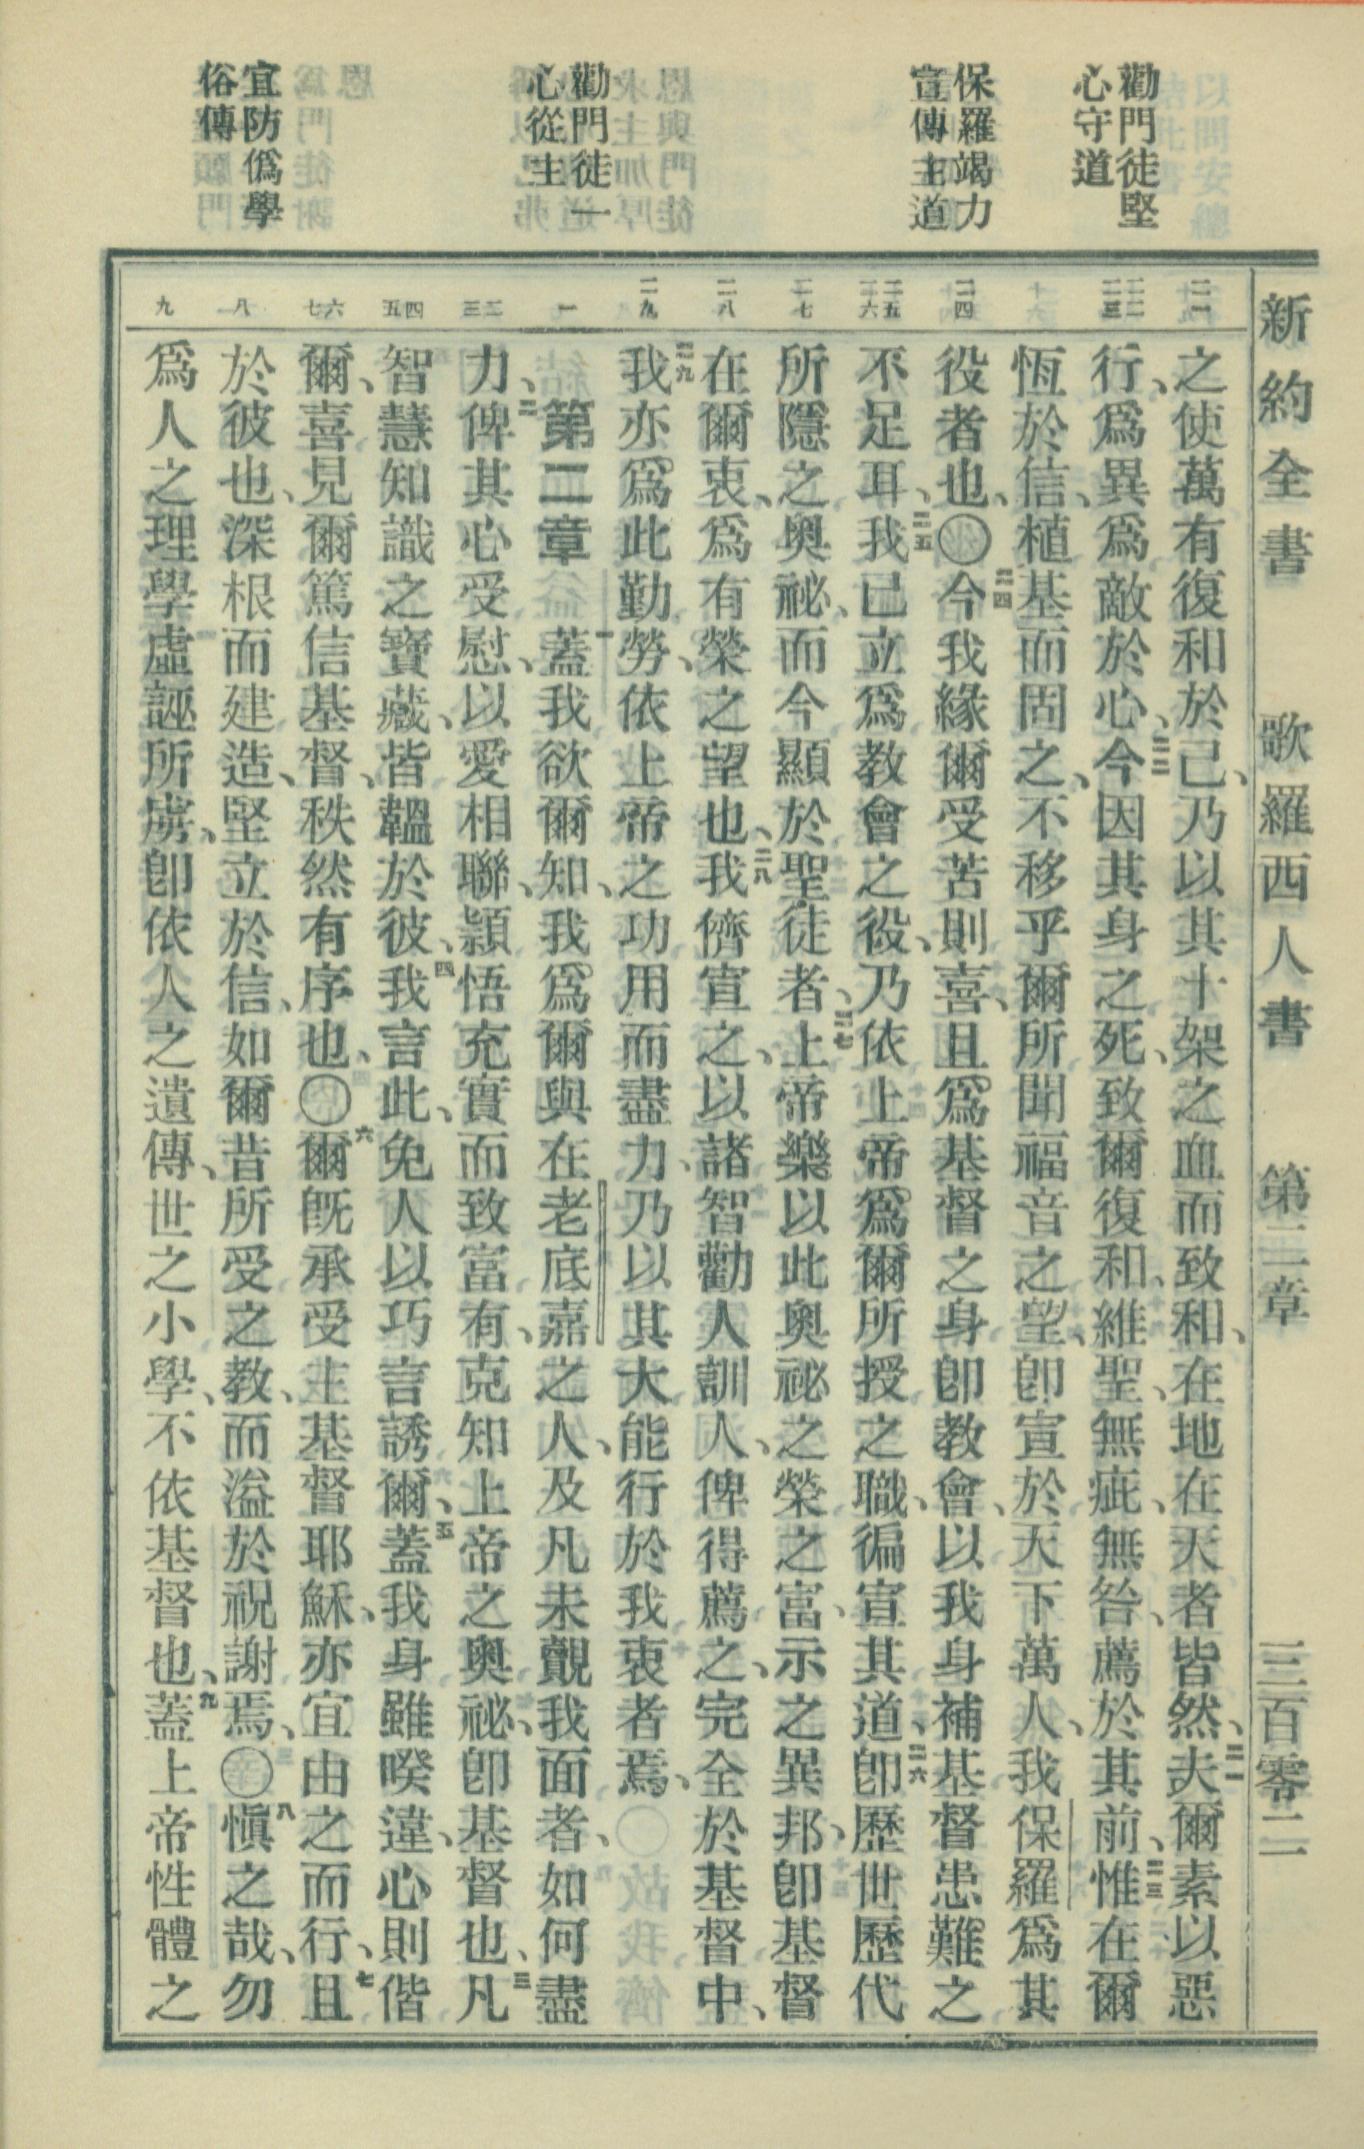 新約全書　歌羅西人書　第二章　三百零二
勸門徒堅
心守道
保羅竭力
宣傳主道
勸門徒一
心從主
宜防僞學
俗傳
二一
二二 二三
二四
二五 二六
二七
二八
二九
一
二 三
四 五
六 七
八
九
之使萬有復和於己、乃以其十架之血而致和、在地在天者皆然、二一夫爾素以惡
行、爲異爲敵於心、二二今因其身之死、致爾復和、維聖、無疵、無咎、薦於其前、二三惟在爾
恆於信、植基而固之、不移乎爾所聞福音之望、卽宣於天下萬人、我保羅爲其
役者也、〇二四今我緣爾受苦則喜、且爲基督之身卽教會、以我身補基督患難之
不足耳、二五我已立爲教會之役、乃依上帝爲爾所授之職、徧宣其道、二六卽歷世歷代
所隱之奧祕、而今顯於聖徒者、二七上帝樂以此奧祕之榮之富、示之異邦、卽基督
在爾衷、爲有榮之望也、二八我儕宣之、以諸智勸人訓人、俾得薦之、完全於基督中、
二九我亦爲此勤勞、依上帝之功用而盡力、乃以其大能行於我衷者焉、
第二章　一蓋我欲爾知、我爲爾與在老底嘉之人、及凡未覿我面者、如何盡
力、二俾其心受慰、以愛相聯、穎悟充實而致富有、克知上帝之奧祕、卽基督也、三凡
智慧知識之寶藏、皆韞於彼、四我言此、免人以巧言誘爾、五蓋我身雖暌違、心則偕
爾、喜見爾篤信基督、秩然有序也、〇六爾旣承受主基督耶穌、亦宜由之而行、七且
於彼也、深根而建造、堅立於信、如爾昔所受之教、而溢於祝謝焉、〇八愼之哉、勿
爲人之理學虛誣所虜、卽依人之遺傳、世之小學、不依基督也、九蓋上帝性體之